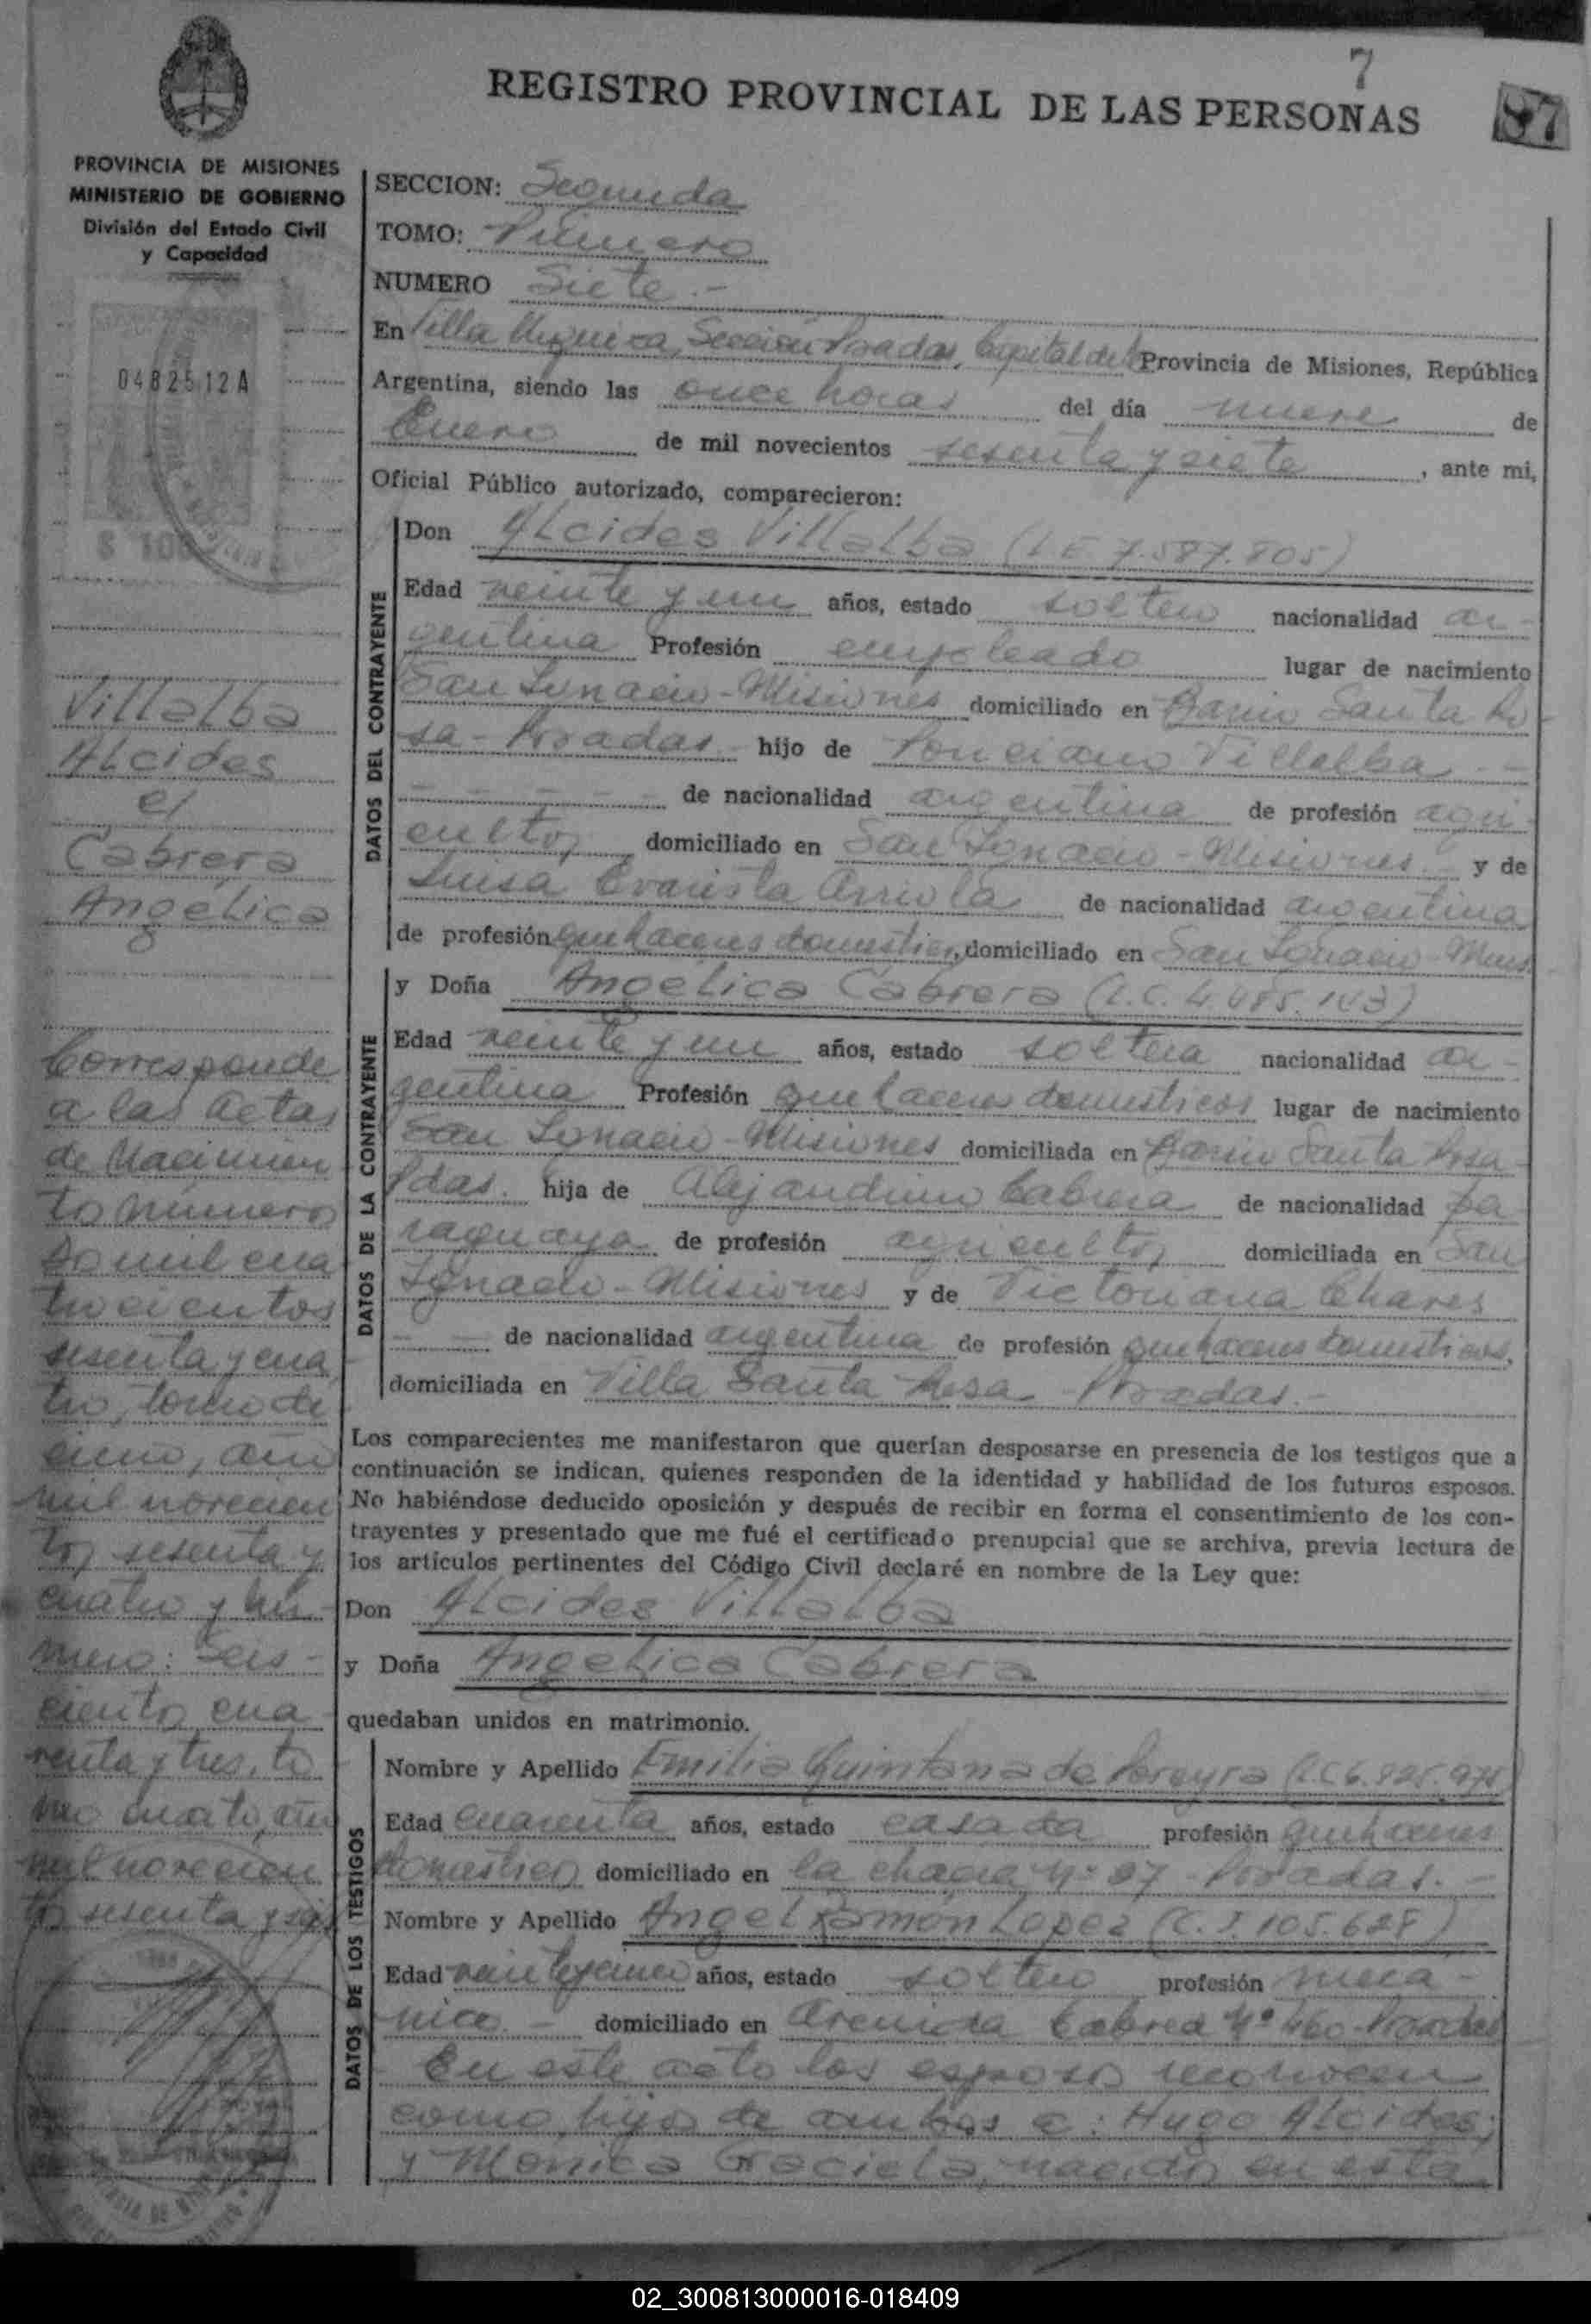 7
REGISTRO PROVINCIAL DE LAS PERSONAS
97
PROVINCIA DE MISIONES
MINISTERIO DE GOBIERNO
División del Estado Civil
y Capacidad
0482512A
$ 100
SECCION: Segunda
TOMO: Primero
NUMERO Siete.-
En Villa Urquiza, Sección Posadas, Capital de la Provincia de Misiones, República
Argentina, siendo las once horas del día nueve de
Enero de mil novecientos sesenta y siete, ante mi,
Oficial Público autorizado, comparecieron:
DATOS DEL CONTRAYENTE
Don Alcides Villalba (L E 7.587.805)
Edad veinte y un años, estado soltero nacionalidad ar-
gentina Profesión empleado lugar de nacimiento
San Ignacio - Misiones domiciliado en Barrio Santa Ro-
sa - Posadas - hijo de Ponciano Villalba - -
- - - - - - de nacionalidad argentina de profesión agri-
cultor domiciliado en San Ignacio - Misiones - y de
Luisa Evarista Arriola de nacionalidad argentina
de profesión quehaceres domesticos, domiciliado en San Ignacio - Mnes.
DATOS DE LA CONTRAYENTE
y Doña Angélica Cabrera (L.C. 4.485.143)
Edad veinte y un años, estado soltera nacionalidad ar-
gentina Profesión quehaceres domesticos lugar de nacimiento
San Ignacio - Misiones domiciliada en Barrio Santa Rosa -
Pdas. hija de Alejandrino Cabrera de nacionalidad pa-
raguaya de profesión agricultor domiciliada en San
Ignacio - Misiones y de Victoriana Chaves
- - de nacionalidad argentina de profesión quehaceres domesticos,
domiciliada en Villa Santa Rosa - Posadas.-
Los comparecientes me manifestaron que querían desposarse en presencia de los testigos que a
continuación se indican, quienes responden de la identidad y habilidad de los futuros esposos.
No habiéndose deducido oposición y después de recibir en forma el consentimiento de los con-
trayentes y presentado que me fué el certificado prenupcial que se archiva, previa lectura de
los artículos pertinentes del Código Civil declaré en nombre de la Ley que:
Don Alcides Villalba
y Doña Angélica Cabrera
quedaban unidos en matrimonio.
DATOS DE LOS TESTIGOS
Nombre y Apellido Emilia Quintana de Pereyra (L.C 6.825.975)
Edad cuarenta años, estado casada profesión quehaceres
domesticos domiciliado en la chacra Nº 37 - Posadas. -
Nombre y Apellido Angel Ramón Lopez (C.I. 105.628)
Edad veinteycinco años, estado soltero profesión meca-
nico. - domiciliado en Avenida Cabred Nº 460 - Posadas
En este acto los esposos reconocen
como hijos de ambos a: Hugo Alcides;
y Mónica Graciela, nacidos en esta
Villalba
Alcides
c/
Cabrera
Angélica
Corresponde
a las actas
de Nacimien
to número
Do mil cua
trocientos
sesenta y cua
tro, tomo de
cimo, año
mil novecien
tos sesenta y
cuatro y nú-
mero: Seis-
cientos cua
renta y tres, to
mo cuarto, año
mil novecien
tos sesenta y seis
02_300813000016-018409